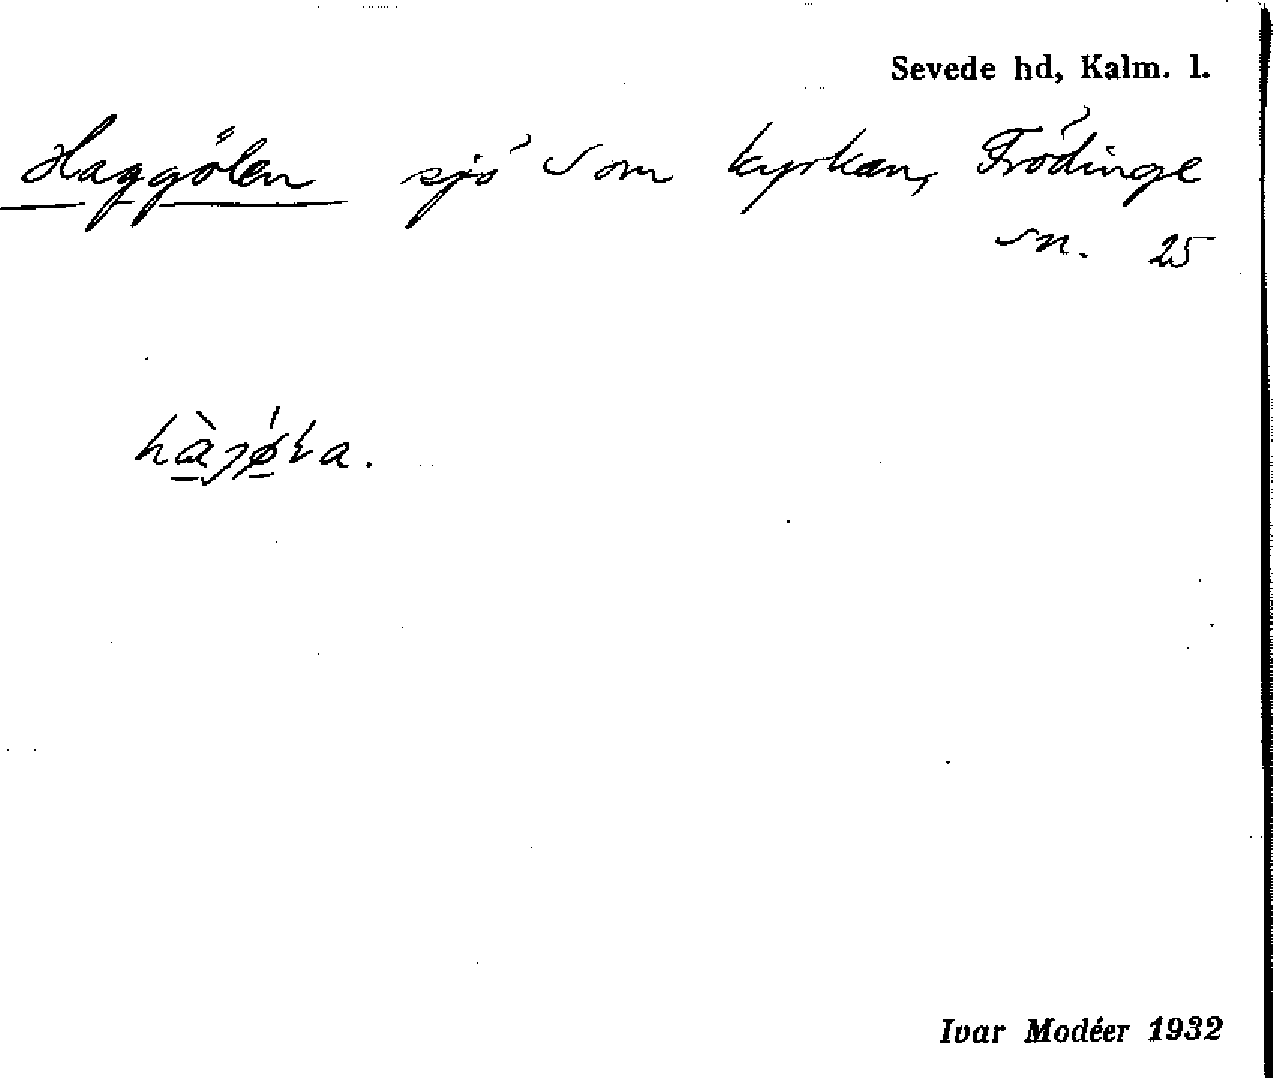 Sevede hd, Kalm. l.
Haggölen sjö S om kyrkan, Frödinge
sn. 25
Ivar Modéer 1932